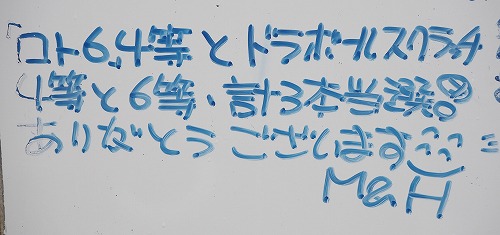 ロト6,4等とドラボールスクラチ
4等と6等・計3本当選。
ありがとうございます
M&H